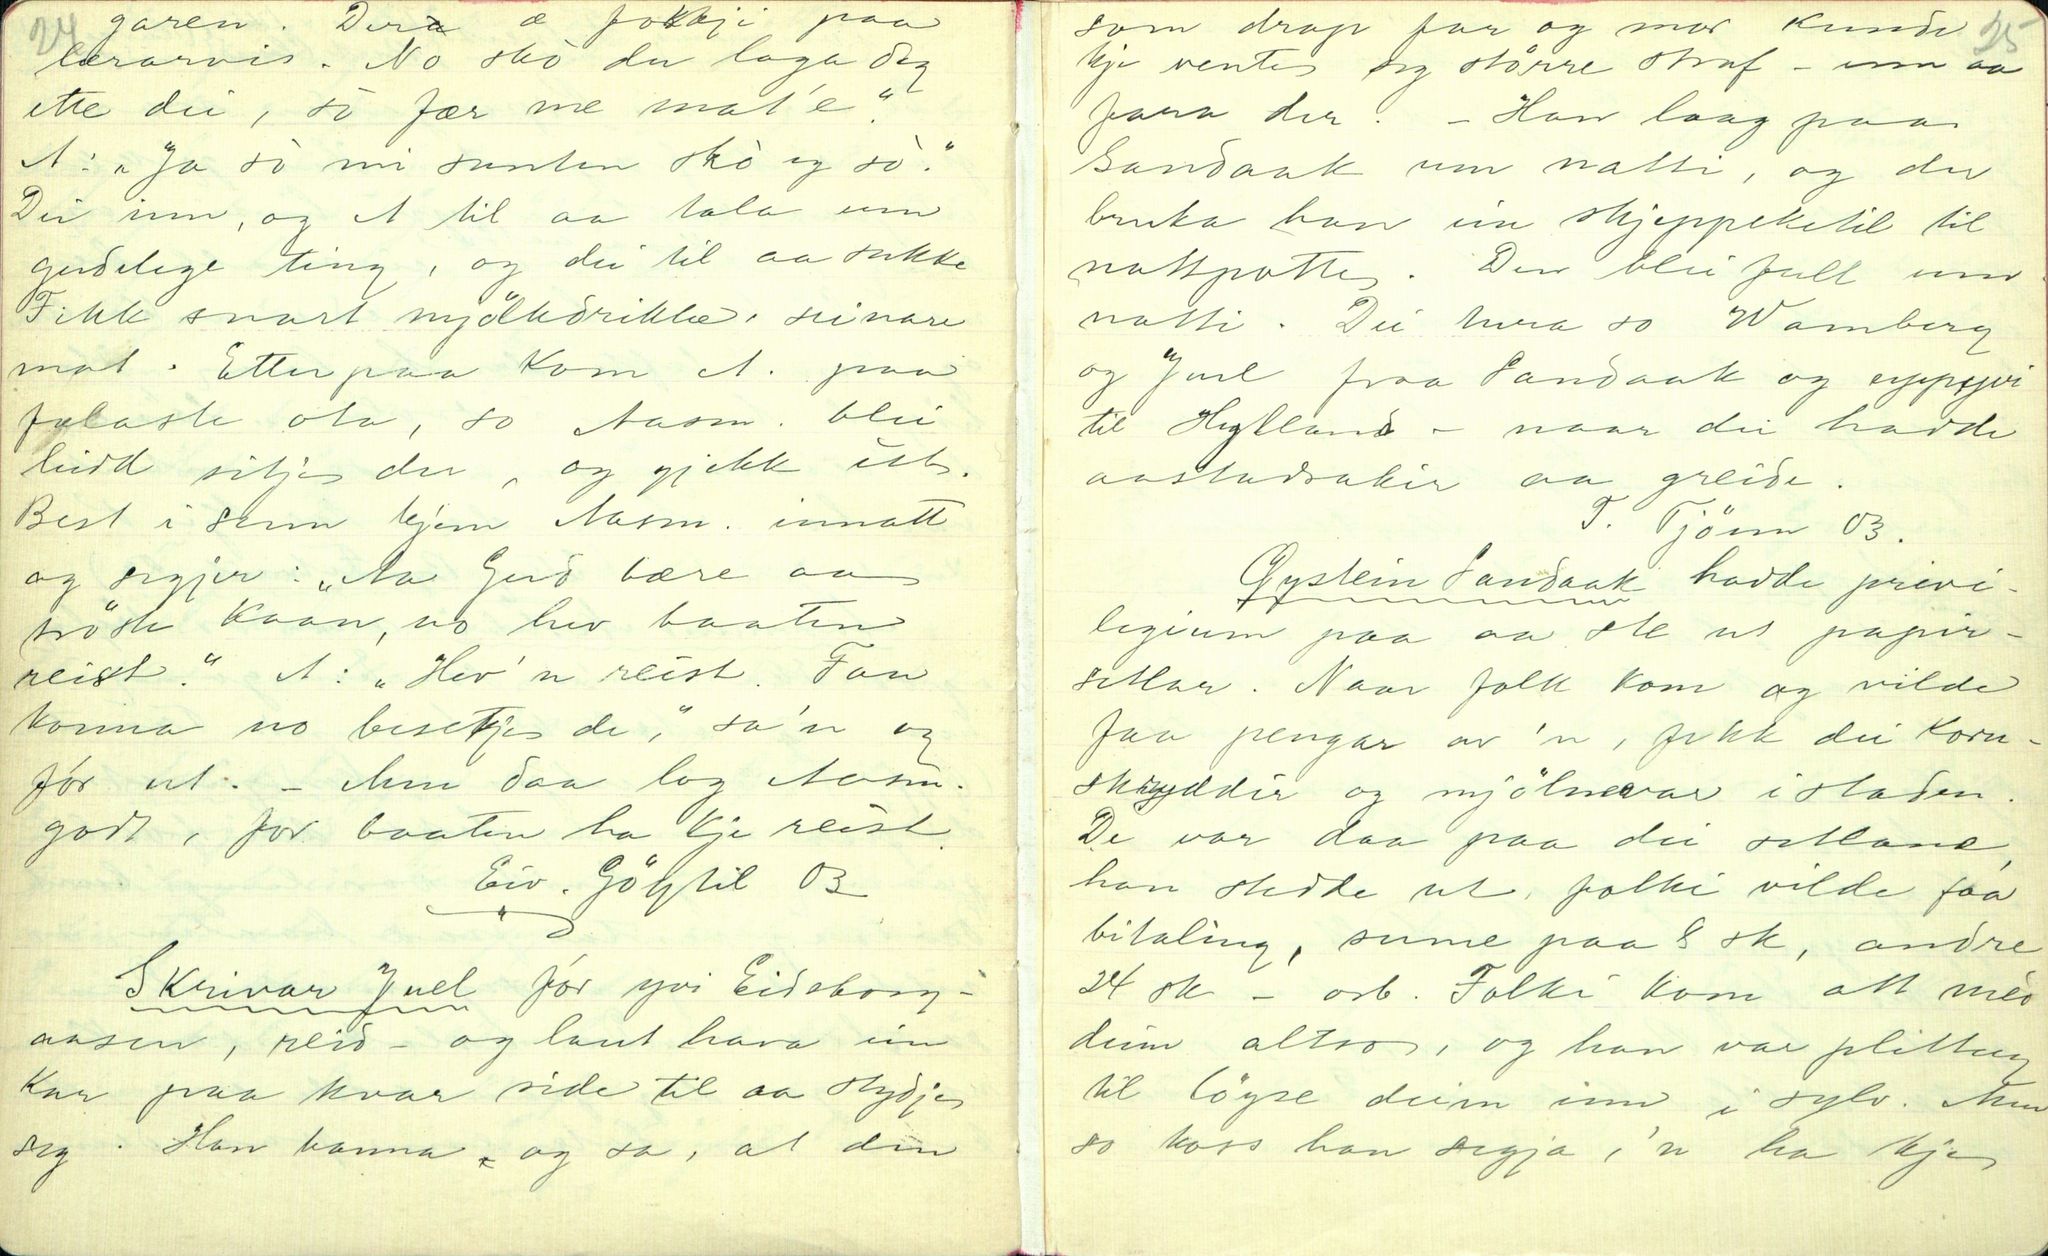 24
garen. Dera æ fokkji paa
lærarvis. No skò du laga deg
ette dei, sò fær me mat'e."
A: "Ja sò mi santen skò eg sò."
Dei inn, og A til aa tala um
gudelege ting, og dei til aa sukke
Fikk snart mjölkdrikke, seinare
mat. Etterpaa kom A. paa
falaste ota, so Aasm. blei
leidd sitje der, og gjekk ut.
Best i senn kjem Aasm. innatt
og segjer: "Aa Gud bære aa
tröste kaan, no hev baaten
reist." A: "Hev'n reist. Fan
konna no besetje de," sa'n og
fór ut. - Men daa log Aasm.
godt, for baaten ha kje reist.
Eiv. Göytil 03
Skrivar Juel fór yvi Eidsborg-
aasen, reid - og laut hava ein
kar paa kvar side til aa stydje
seg. Han banna og sa, at den
25
som drap far og mor kunde
kje vente seg större straf - enn aa
fara der. - Han laag paa
Sandaak um natti, og der
bruka han ein skjeppeketil til
nattpotte. Den blei full um
natti. Dei bera so Wamberg
og Juel fraa Sandaak og uppyvi
til Hylland - naar dei hadde
aastadsakir aa greide.
T. Tjönn 03.
Øystein Sandaak hadde privi-
legium paa aa ste ut papir-
setlar. Naar folk kom og vilde
faa pengar av'n, fekk dei korn-
skryddir og mjölnevar i staden.
De var daa paa dei setlane,
han stedde ut, folki vilde faa
bitaling, sume paa 8 sk, andre
24 sk - osb. Folki kom att med
deim altso, og han var plittug
til löyse deim inn i sylv. Men
so koss han segja, 'n ha kje